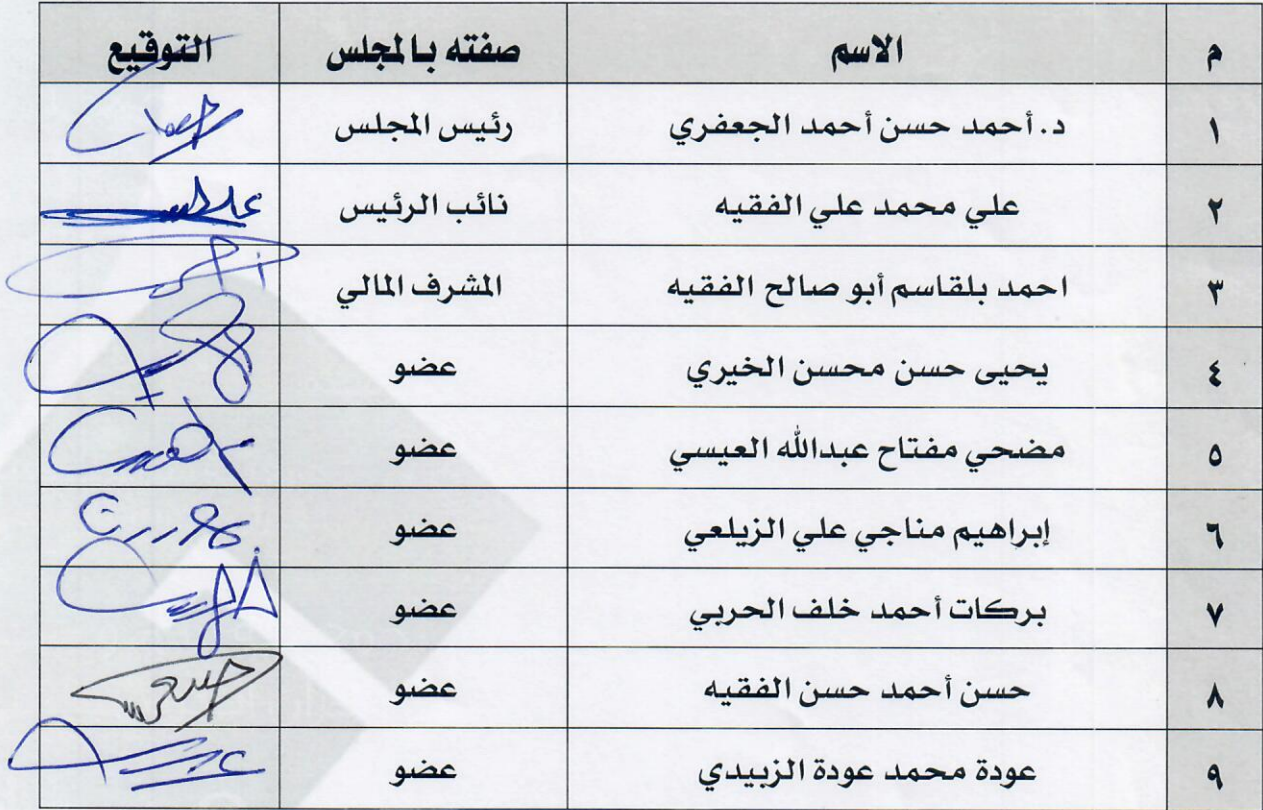 م الاسم صفته بالمجلس التوقيع
١ د. أحمد حسن أحمد الجعفري رئيس المجلس
٢ علي محمد علي الفقيه نائب الرئيس
٣ احمد بلقاسم أبو صالح الفقيه المشرف المالي
٤ يحيى حسن محسن الخيري عضو
٥ مضحي مفتاح عبدالله العيسي عضو
٦ إبراهيم مناجي علي الزيلعي عضو
٧ بركات أحمد خلف الحربي عضو
٨ حسن أحمد حسن الفقيه عضو
٩ عودة محمد عودة الزبيدي عضو